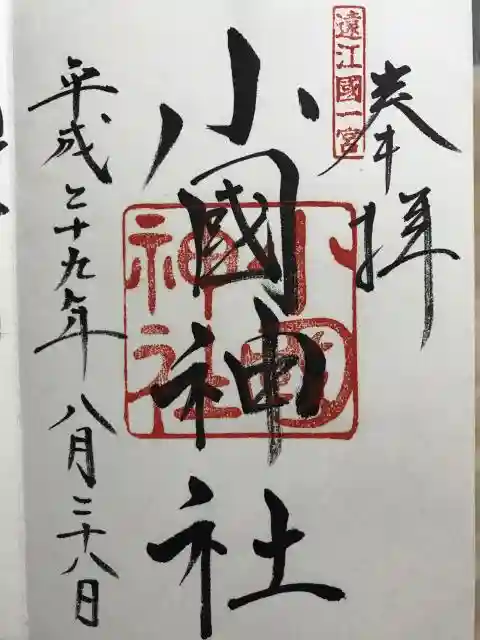 遠江國一宮
奉拝
小國神社
小國神社
平成二十九年八月二十八日